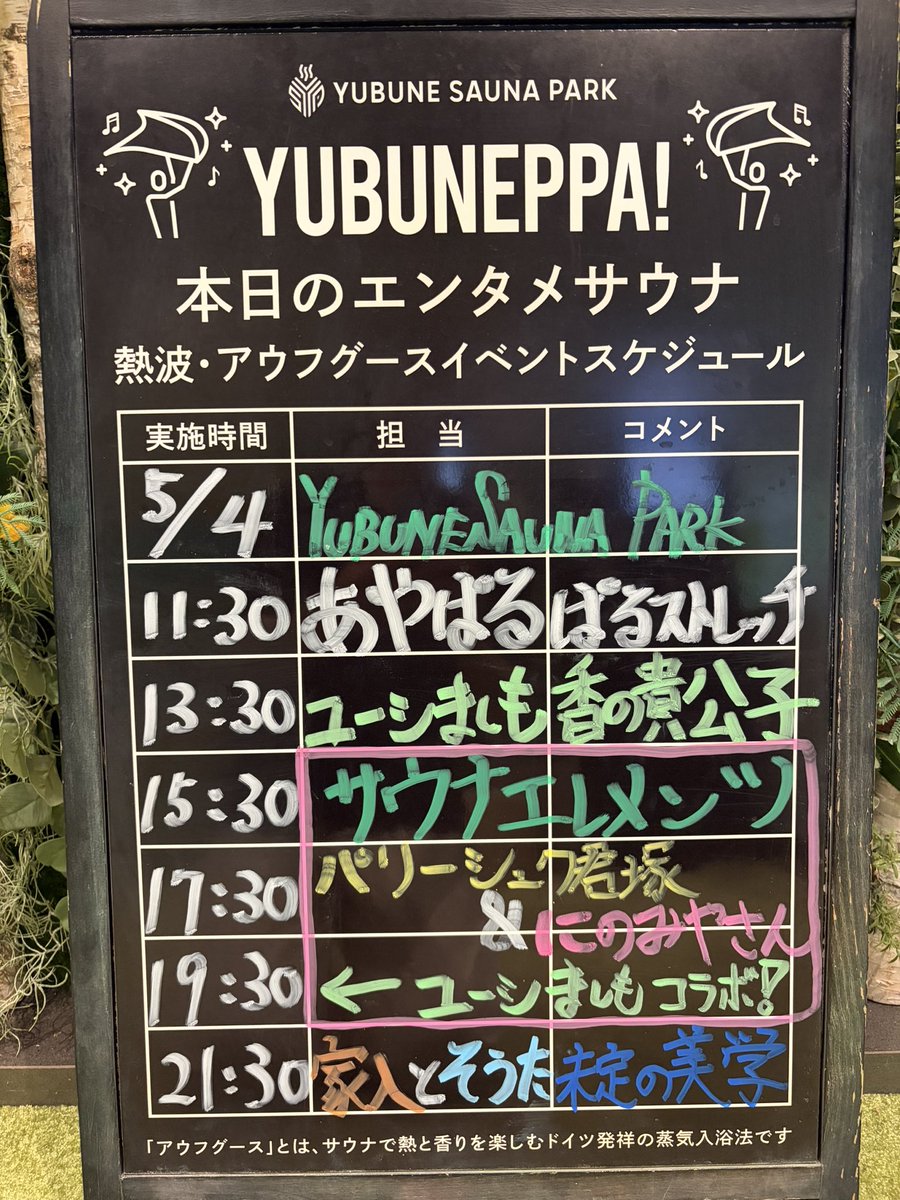 YUBUNE SAUNA PARK
YUBUNEPPA!
本日のエンタメサウナ
熱波・アウフグースイベントスケジュール
実施時間 担当 コメント
5/4 YUBUNE SAUNA PARK
11:30 あやばる ばるストレッチ
13:30 ユーシましも 香の貴公子
15:30 サウナエレメンツ
17:30 パリーシュク君塚
&にのみやさん
19:30 ← ユーシましもコラボ!
21:30 家入とそうた 未定の美学
「アウフグース」とは、サウナで熱と香りを楽しむドイツ発祥の蒸気入浴法です